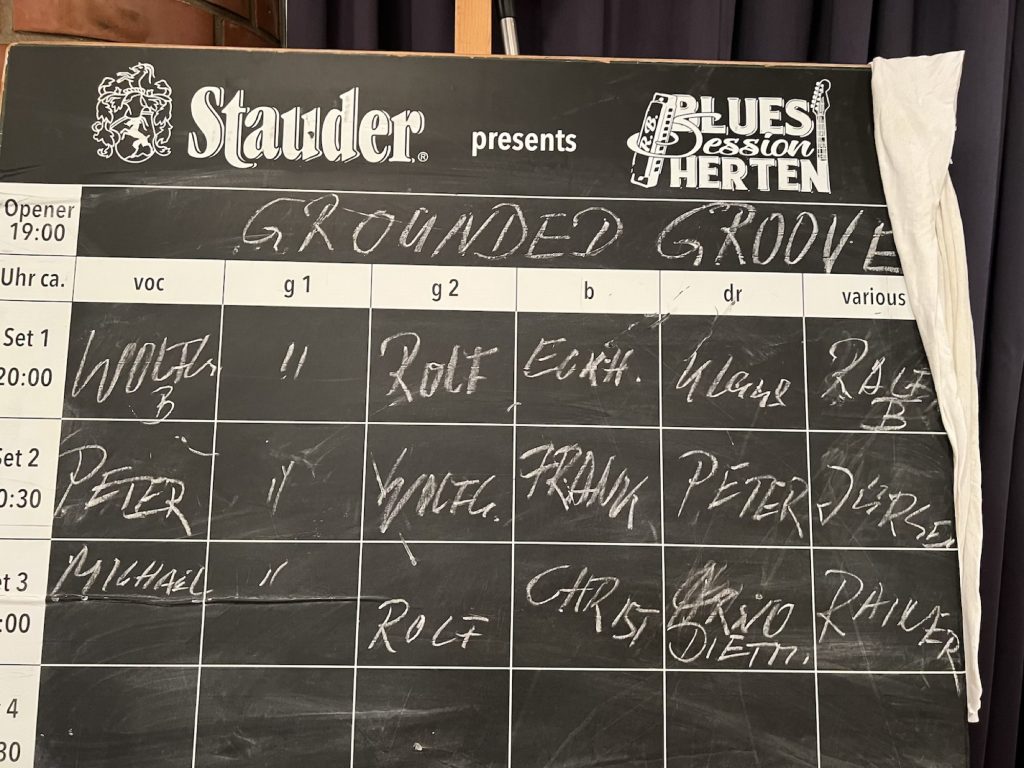 Stauder® presents BLUES Session HERTEN
R.B.
Opener
19:00
GROUNDED GROOVE
Uhr ca. voc g 1 g 2 b dr various
Set 1
20:00
WOLFG.
B
" ROLF ECKH. Klaus RALF
B
Set 2
0:30
PETER " WOLFG. FRANK PETER JÜRGE
et 3
:00
MICHAEL " ROLF CHRIST ARNO
DIETM.
RAINER
4
30